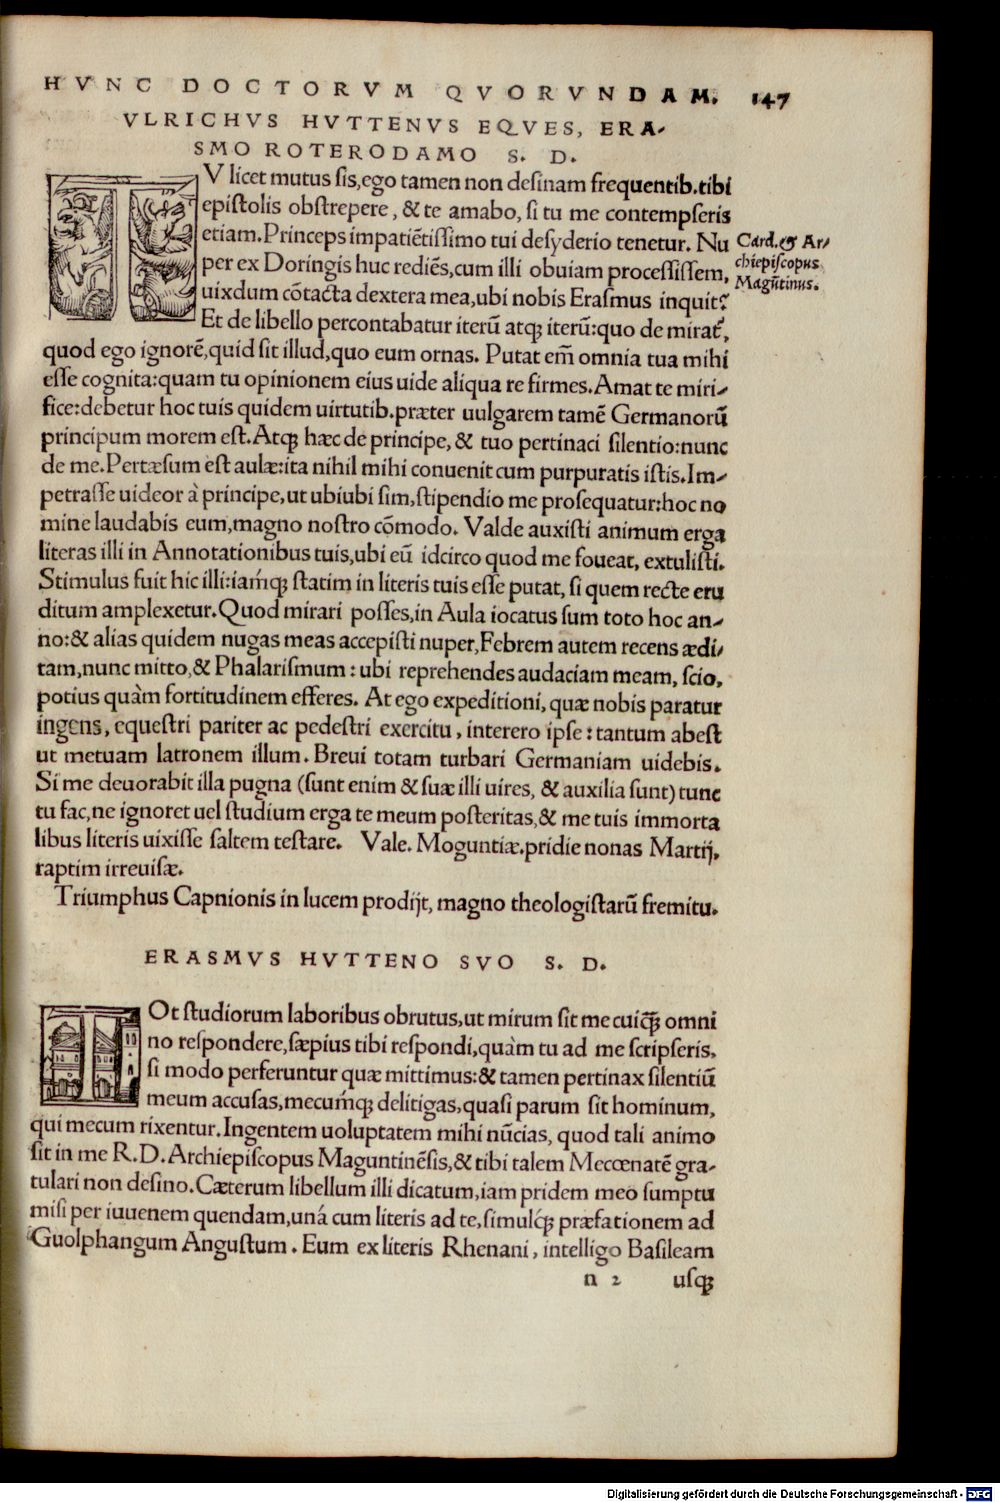 HVNC DOCTORVM QVORVNDAM. 147
VLRICHVS HVTTENVS EQVES, ERA-
SMO ROTERODAMO S. D.
TV licet mutus sis,ego tamen non desinam frequentib.tibi
epistolis obstrepere, & te amabo, si tu me contempseris
etiam.Princeps impatiẽtissimo tui desyderio tenetur. Nu
per ex Doringis huc rediẽs,cum illi obuiam processissem,
uixdum cõtacta dextera mea,ubi nobis Erasmus inquit?
Et de libello percontabatur iterũ atqꝫ iterũ:quo de mirat᷒,
quod ego ignorẽ,quid sit illud,quo eum ornas. Putat em̃ omnia tua mihi
esse cognita:quam tu opinionem eius uide aliqua re firmes.Amat te miri-
fice:debetur hoc tuis quidem uirtutib.præter uulgarem tamẽ Germanorũ
principum morem est.Atqꝫ hæc de principe, & tuo pertinaci silentio:nunc
de me.Pertæsum est aulæ:ita nihil mihi conuenit cum purpuratis istis.Im-
petrasse uideor à principe,ut ubiubi sim,stipendio me prosequatur:hoc no
mine laudabis eum,magno nostro cõmodo. Valde auxisti animum erga
literas illi in Annotationibus tuis,ubi eũ idcirco quod me foueat, extulisti.
Stimulus fuit hic illi:iaḿqꝫ statim in literis tuis esse putat, si quem recte eru
ditum amplexetur.Quod mirari posses,in Aula iocatus sum toto hoc an-
no:& alias quidem nugas meas accepisti nuper,Febrem autem recens ædi-
tam,nunc mitto,& Phalarismum: ubi reprehendes audaciam meam, scio,
potius quàm fortitudinem efferes. At ego expeditioni, quæ nobis paratur
ingens, equestri pariter ac pedestri exercitu, interero ipse: tantum abest
ut metuam latronem illum. Breui totam turbari Germaniam uidebis.
Si me deuorabit illa pugna (sunt enim & suæ illi uires, & auxilia sunt) tunc
tu fac,ne ignoret uel studium erga te meum posteritas,& me tuis immorta
libus literis uixisse saltem testare. Vale. Moguntiæ.pridie nonas Martij,
raptim irreuisæ.
Triumphus Capnionis in lucem prodijt, magno theologistarũ fremitu.
Card.& Ar-
chiepiscopus
Magũtinus.
ERASMVS HVTTENO SVO S. D.
TOt studiorum laboribus obrutus,ut mirum sit me cuiq̃ꝫ omni
no respondere,sæpius tibi respondi,quàm tu ad me scripseris,
si modo perferuntur quæ mittimus:& tamen pertinax silentiũ
meum accusas,mecuḿqꝫ delitigas,quasi parum sit hominum,
qui mecum rixentur.Ingentem uoluptatem mihi nũcias, quod tali animo
sit in me R.D.Archiepiscopus Maguntinẽsis,& tibi talem Mecœnatẽ gra-
tulari non desino.Cæterum libellum illi dicatum,iam pridem meo sumptu
misi per iuuenem quendam,unà cum literis ad te,simuĺqꝫ præfationem ad
Guolphangum Angustum. Eum ex literis Rhenani, intelligo Basileam
n 2 usqꝫ
Digitalisierung gefördert durch die Deutsche Forschungsgemeinschaft - DFG